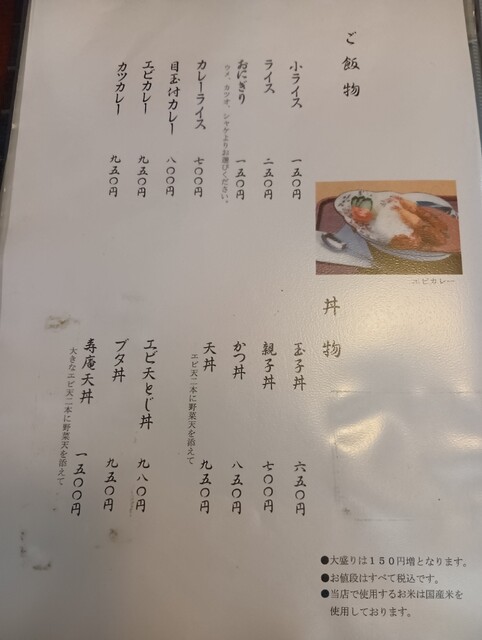 ご飯物
小ライス 一五〇円
ライス 二五〇円
おにぎり 一五〇円
ウメ、カツオ、シャケよりお選びください。
カレーライス 七〇〇円
目玉付カレー 八〇〇円
エビカレー 九五〇円
カツカレー 九五〇円
エビカレー
丼物
玉子丼 六五〇円
親子丼 七〇〇円
かつ丼 八五〇円
天丼 九五〇円
エビ天二本に野菜天を添えて
エビ天とじ丼 九八〇円
ブタ丼 九五〇円
寿庵天丼 一五〇〇円
大きなエビ天二本に野菜天を添えて
●大盛りは150円増となります。
●お値段はすべて税込です。
●当店で使用するお米は国産米を
使用しております。